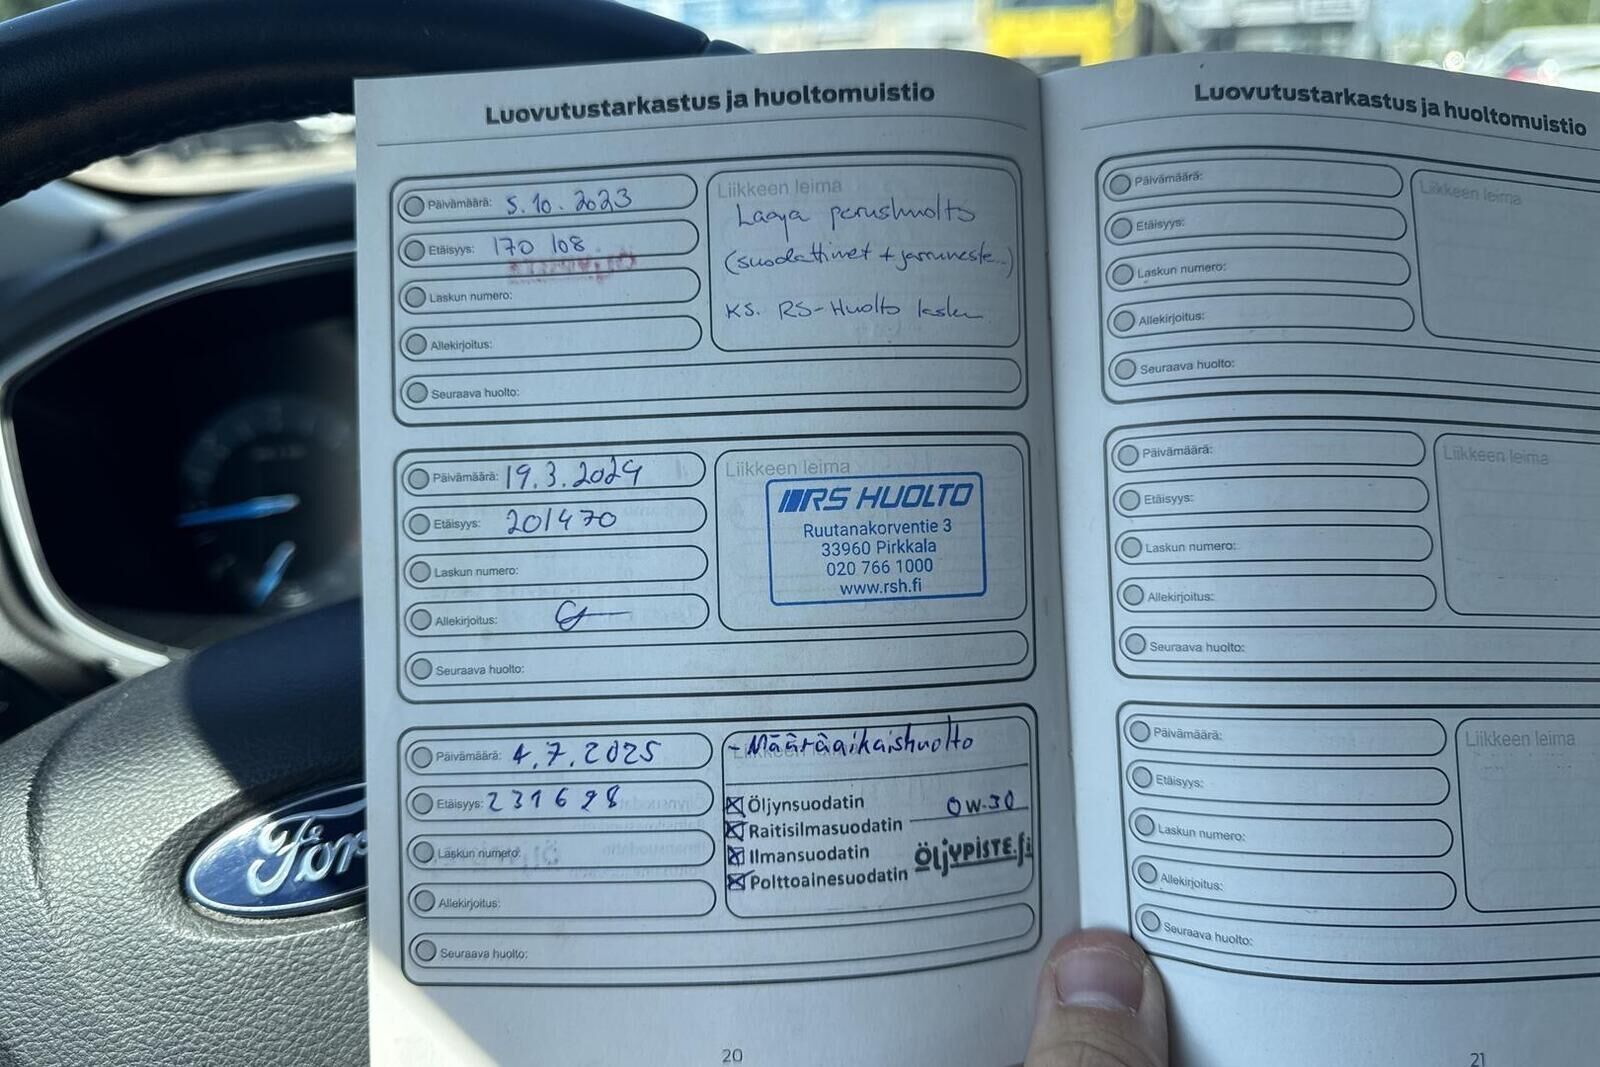 Luovutustarkastus ja huoltomuistio
Päivämäärä: 5.10.2023
Etäisyys: 170 108
Laskun numero:
Allekirjoitus:
Seuraava huolto:
Liikkeen leima
Laaja perushuolto
(suodattimet + jarruneste...)
KS. RS-Huolto lasku
Päivämäärä: 19.3.2024
Etäisyys: 201470
Laskun numero:
Allekirjoitus:
Seuraava huolto:
Liikkeen leima
RS HUOLTO
Ruutanakorventie 3
33960 Pirkkala
020 766 1000
www.rsh.fi
Päivämäärä: 4.7.2025
Etäisyys: 231698
Laskun numero:
Allekirjoitus:
Seuraava huolto:
- Määräaikaishuolto
Öljynsuodatin 0W-30
Raitisilmasuodatin
Ilmansuodatin
Polttoainesuodatin
ÖljYPISTE.fi
20
Luovutustarkastus ja huoltomuistio
Päivämäärä:
Etäisyys:
Laskun numero:
Allekirjoitus:
Seuraava huolto:
Liikkeen leima
Päivämäärä:
Etäisyys:
Laskun numero:
Allekirjoitus:
Seuraava huolto:
Liikkeen leima
Päivämäärä:
Etäisyys:
Laskun numero:
Allekirjoitus:
Seuraava huolto:
Liikkeen leima
21
Ford